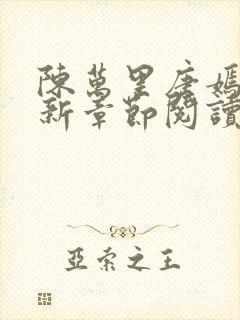 陳萬里唐嫣
新章節閱讀
亞索之王